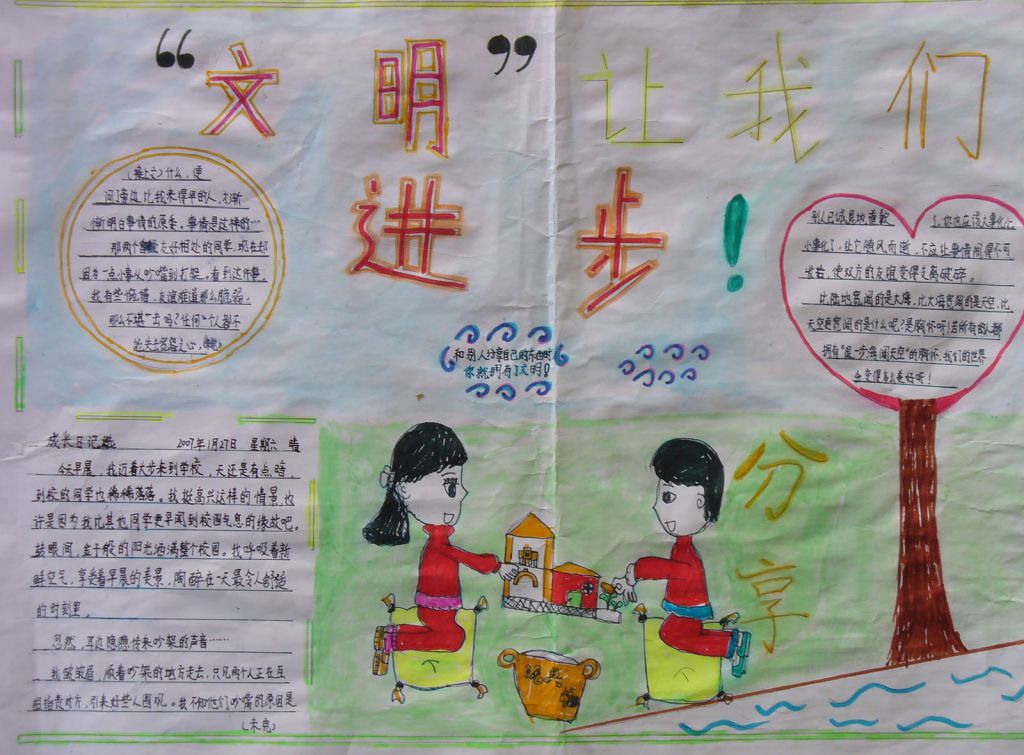 “文明”让我们
进步！
成长日记 2007年1月27日 星期六 晴
今天早晨，我迈着大步来到学校，天还是有点暗，
到校的同学也稀稀落落。我挺高兴这样的情景，也
许是因为我比其他同学更早闻到校园气息的缘故吧。
眨眼间，金子般的阳光洒满整个校园。我呼吸着新
鲜空气，享受着早晨的美景，陶醉在一天最令人舒适
的时刻里。
忽然，耳边隐隐传来吵架的声音……
我皱皱眉，顺着吵架的地方走去，只见两个人正在互
相指责对方，引来好些人围观。我不知他们吵嘴的原因是
（未完）
（接上文）什么，便
问旁边比我来得早的人，才渐
渐明白事情的原委，事情是这样的…
那两个友好相处的同学，现在却
因为一点小事从吵嘴到打架。看到这件事，
我有些惋惜，友谊难道那么脆弱，
那么不堪一击吗？任何一个人都不
能失去宽容之心，
和别人分享自己的东西时，
你就拥有了文明！
分
享
别人已诚恳地道歉
了，你也应该大事化小，
小事化了，让它随风而逝，不应让事情闹得不可
收拾，使双方的友谊变得支离破碎。
比陆地宽阔的是大海，比大海宽阔的是天空，比
天空更宽阔的是什么呢？是胸怀呀！若所有的人都
拥有“退一步海阔天空”的胸怀，我们的世界
会变得多么美好呀！